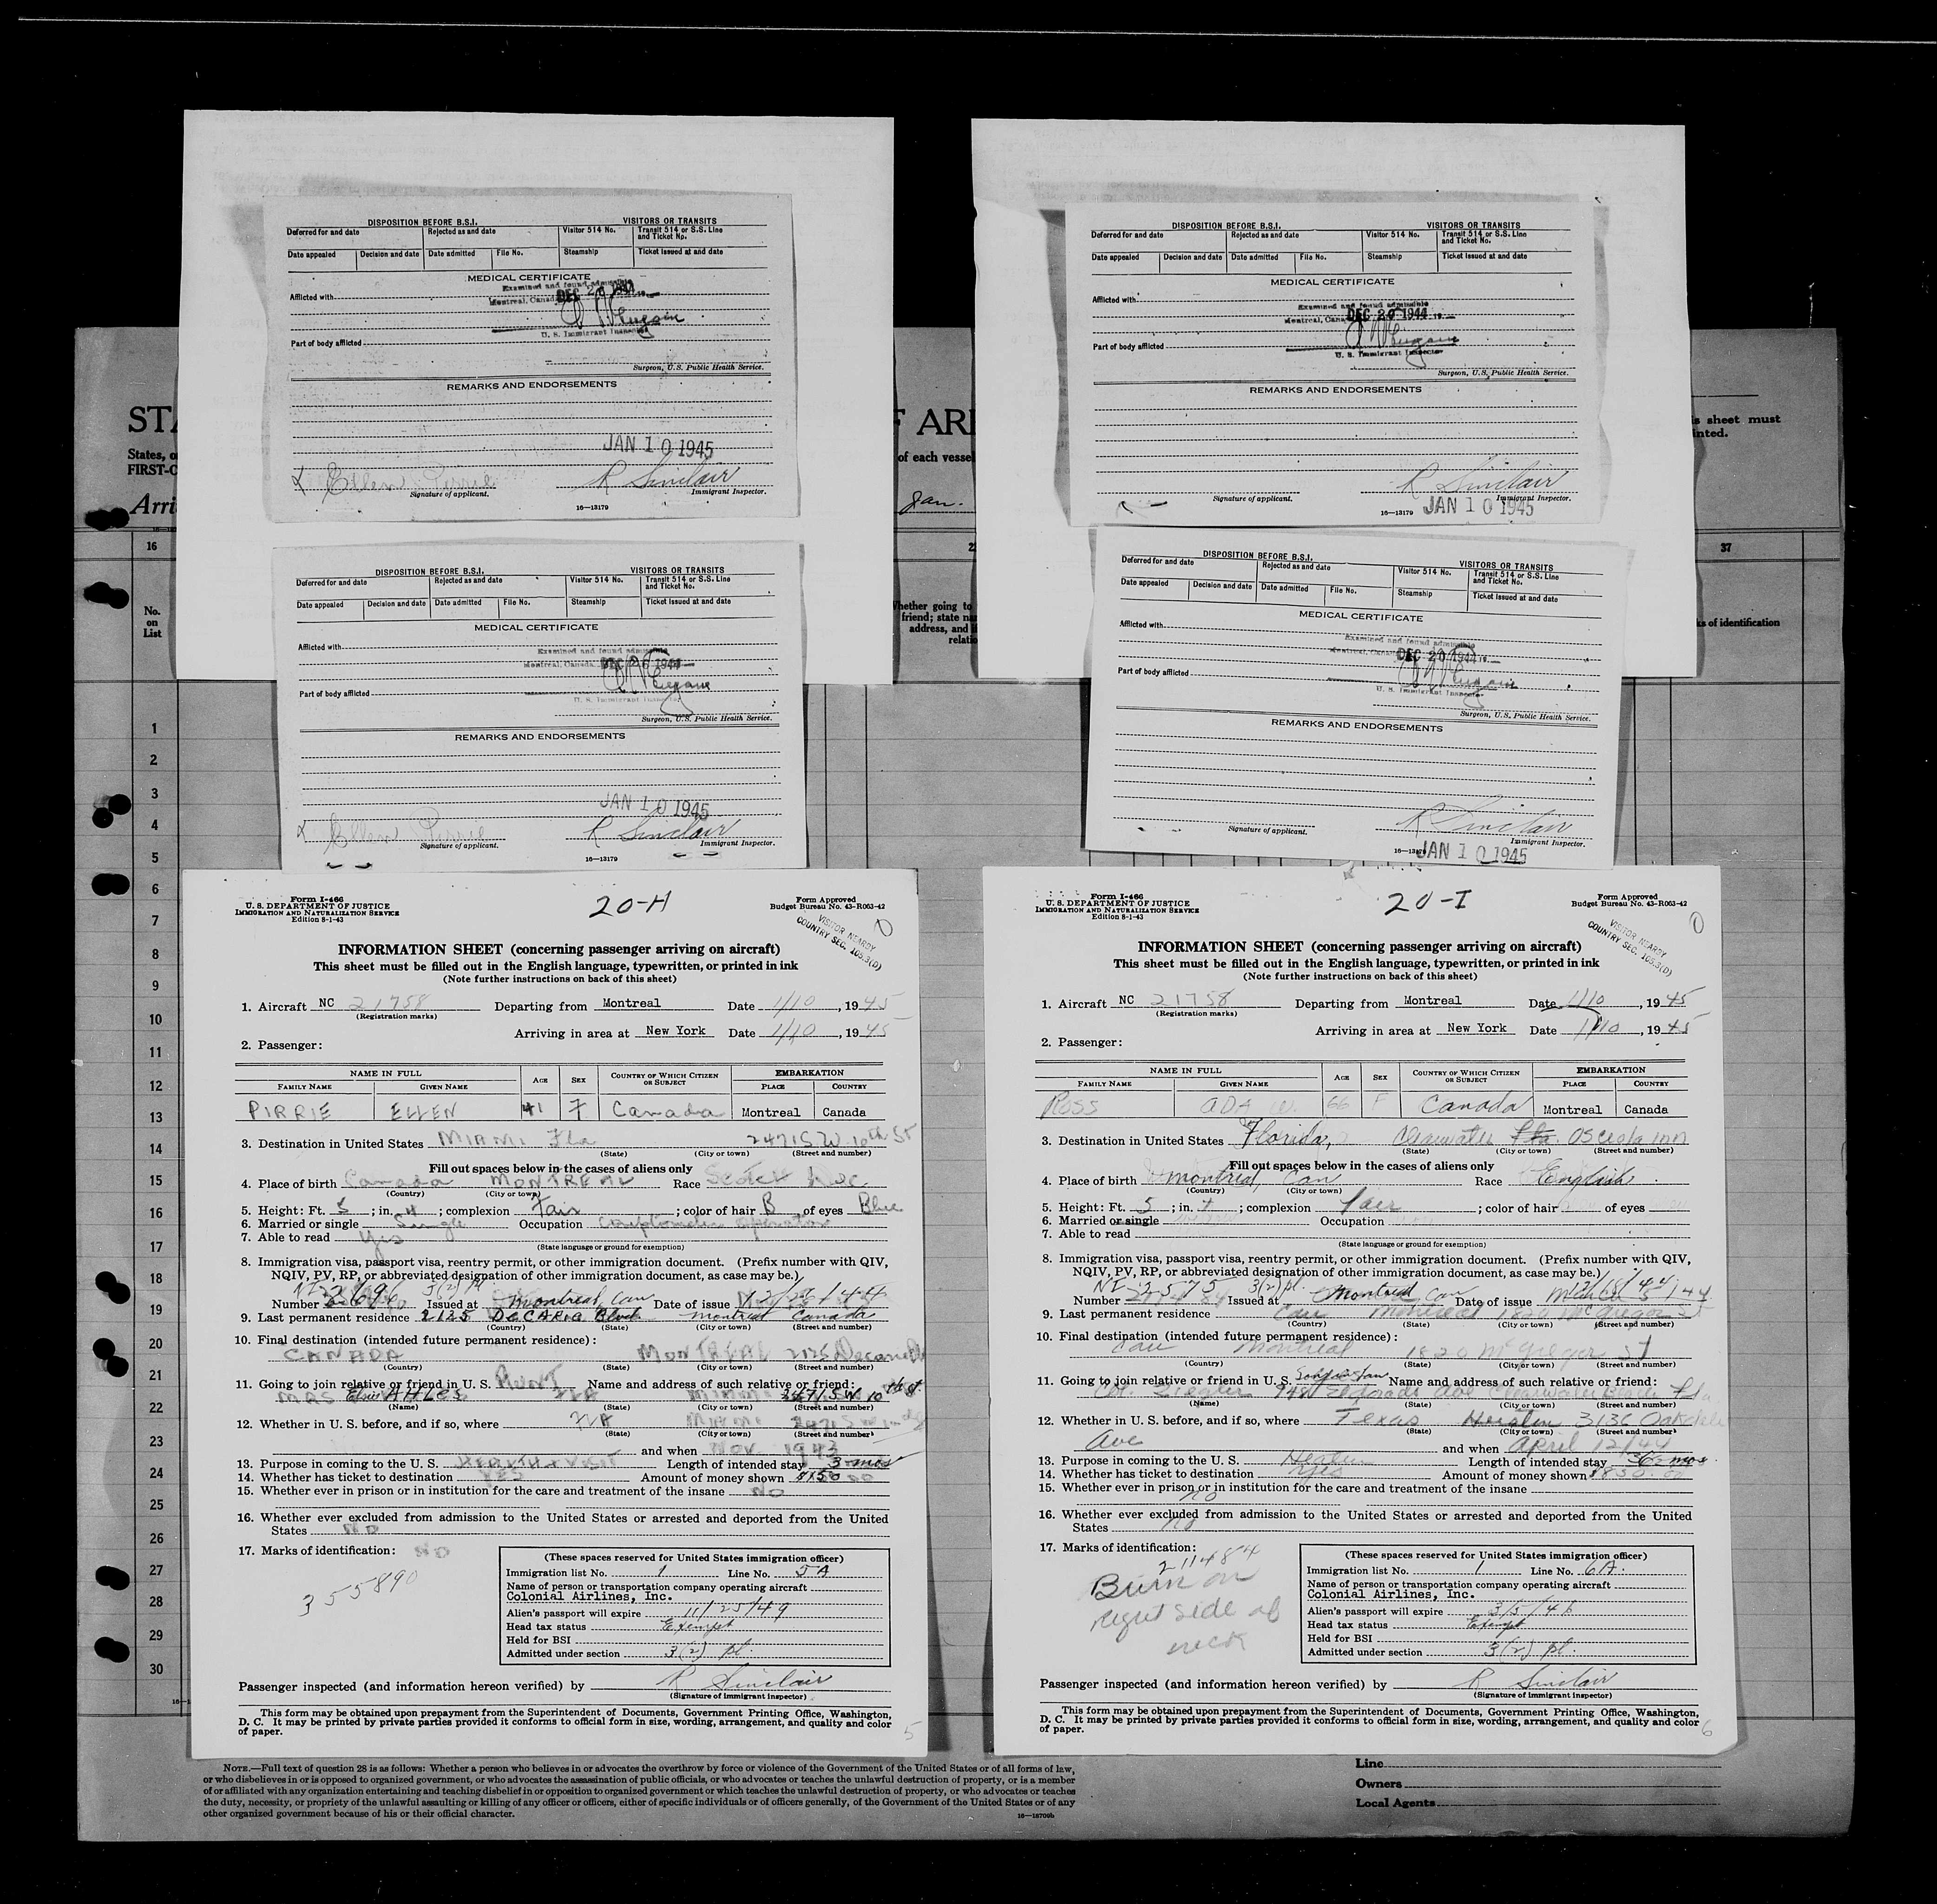 DISPOSITION BEFORE B.S.I. VISITORS OR TRANSITS
Deferred for and date Rejected as and date Visitor 514 No. Transit 514 or S.S. Line and Ticket No.
Date appealed Decision and date Date admitted File No. Steamship Ticket issued at and date
MEDICAL CERTIFICATE
Examined and found admissible
Afflicted with
Montreal, Canada DEC 20 1944
U. S. Immigrant Inspector
Part of body afflicted
Surgeon, U.S. Public Health Service.
REMARKS AND ENDORSEMENTS
JAN 10 1945
Ellen Pirrie R Sinclair
Signature of applicant. Immigrant Inspector.
16—13179
DISPOSITION BEFORE B.S.I. VISITORS OR TRANSITS
Deferred for and date Rejected as and date Visitor 514 No. Transit 514 or S.S. Line and Ticket No.
Date appealed Decision and date Date admitted File No. Steamship Ticket issued at and date
MEDICAL CERTIFICATE
Afflicted with
Examined and found admissible
Montreal, Canada DEC 20 1944 19
U. S. Immigrant Inspector
Part of body afflicted
Surgeon, U.S. Public Health Service.
REMARKS AND ENDORSEMENTS
R Sinclair
Signature of applicant. Immigrant Inspector.
16—13179 JAN 10 1945
STA
F ARI
is sheet must
inted.
States, o
FIRST-C
of each vesse
Arri
Jan.
16
37
No.
on
List
Whether going to
friend; state na
address, and
relatio
ks of identification
DISPOSITION BEFORE B.S.I. VISITORS OR TRANSITS
Deferred for and date Rejected as and date Visitor 514 No. Transit 514 or S.S. Line and Ticket No.
Date appealed Decision and date Date admitted File No. Steamship Ticket issued at and date
MEDICAL CERTIFICATE
Afflicted with
Examined and found admissible
Montreal, Canada DEC 26 1944
U. S. Immigrant Inspector
Part of body afflicted
Surgeon, U.S. Public Health Service.
REMARKS AND ENDORSEMENTS
JAN 10 1945
Ellen Pirrie R Sinclair
Signature of applicant. Immigrant Inspector.
16—13179
DISPOSITION BEFORE B.S.I. VISITORS OR TRANSITS
Deferred for and date Rejected as and date Visitor 514 No. Transit 514 or S.S. Line and Ticket No.
Date appealed Decision and date Date admitted File No. Steamship Ticket issued at and date
MEDICAL CERTIFICATE
Afflicted with
Examined and found admissible
Montreal, Canada DEC 20 1944 19
U. S. Immigrant Inspector
Part of body afflicted
Surgeon, U.S. Public Health Service.
REMARKS AND ENDORSEMENTS
R Sinclair
Signature of applicant. Immigrant Inspector.
16—13179 JAN 10 1945
1
2
3
4
5
6
7
8
9
10
11
12
13
14
15
16
17
18
19
20
21
22
23
24
25
26
27
28
29
30
Form I-466
U. S. DEPARTMENT OF JUSTICE
IMMIGRATION AND NATURALIZATION SERVICE
Edition 8-1-43
20-H
Form Approved
Budget Bureau No. 43-R063-42
VISITOR NEARBY
COUNTRY SEC. 105.3(D)
INFORMATION SHEET (concerning passenger arriving on aircraft)
This sheet must be filled out in the English language, typewritten, or printed in ink
(Note further instructions on back of this sheet)
1. Aircraft NC 21758 Departing from Montreal Date 1/10, 1945
(Registration marks)
Arriving in area at New York Date 1/10, 1945
2. Passenger:
NAME IN FULL AGE SEX COUNTRY OF WHICH CITIZEN OR SUBJECT EMBARKATION
FAMILY NAME GIVEN NAME PLACE COUNTRY
PIRRIE ELLEN 41 F Canada Montreal Canada
3. Destination in United States MIAMI Fla 2471 SW 10th St
(State) (City or town) (Street and number)
Fill out spaces below in the cases of aliens only
4. Place of birth Canada MONTREAL Race Scotch
(Country) (City or town)
5. Height: Ft. 5; in. 4; complexion Fair; color of hair B of eyes Blue
6. Married or single Single Occupation Comptometer operator
7. Able to read Yes
(State language or ground for exemption)
8. Immigration visa, passport visa, reentry permit, or other immigration document. (Prefix number with QIV,
NQIV, PV, RP, or abbreviated designation of other immigration document, as case may be.)
3(2) pl.
Number Issued at Montreal, Can Date of issue
9. Last permanent residence 2125 DECARIE Blvd Montreal Canada
(Country) (State) (City or town) (Street and number)
10. Final destination (intended future permanent residence):
CANADA MONTREAL 2125 Decarie
(Country) (State) (City or town) (Street and number)
11. Going to join relative or friend in U. S. AUNT Name and address of such relative or friend:
MRS Elsie AHLES FLA MIAMI 2471 SW 10th st
(Name) (State) (City or town) (Street and number)
12. Whether in U. S. before, and if so, where FLA MIAMI
(State) (City or town) (Street and number)
and when Nov. 1943
13. Purpose in coming to the U. S. HEALTH + VISIT Length of intended stay 3 mos
14. Whether has ticket to destination YES Amount of money shown $150
15. Whether ever in prison or in institution for the care and treatment of the insane NO
16. Whether ever excluded from admission to the United States or arrested and deported from the United
States NO
17. Marks of identification: NO
355890
(These spaces reserved for United States immigration officer)
Immigration list No. 1 Line No. 5A
Name of person or transportation company operating aircraft
Colonial Airlines, Inc.
Alien's passport will expire 11/25/49
Head tax status Exempt
Held for BSI
Admitted under section 3(2) pl.
Passenger inspected (and information hereon verified) by R Sinclair
(Signature of immigrant inspector)
This form may be obtained upon prepayment from the Superintendent of Documents, Government Printing Office, Washington,
D. C. It may be printed by private parties provided it conforms to official form in size, wording, arrangement, and quality and color
of paper.
5
Form I-466
U. S. DEPARTMENT OF JUSTICE
IMMIGRATION AND NATURALIZATION SERVICE
Edition 8-1-43
20-I
Form Approved
Budget Bureau No. 43-R063-42
VISITOR NEARBY
COUNTRY SEC. 105.3(D)
INFORMATION SHEET (concerning passenger arriving on aircraft)
This sheet must be filled out in the English language, typewritten, or printed in ink
(Note further instructions on back of this sheet)
1. Aircraft NC 21758 Departing from Montreal Date 1/10, 1945
(Registration marks)
Arriving in area at New York Date 1/10, 1945
2. Passenger:
NAME IN FULL AGE SEX COUNTRY OF WHICH CITIZEN OR SUBJECT EMBARKATION
FAMILY NAME GIVEN NAME PLACE COUNTRY
ROSS ADA W. 66 F Canada Montreal Canada
3. Destination in United States Florida, Clearwater Fla. Osceola Inn
(State) (City or town) (Street and number)
Fill out spaces below in the cases of aliens only
4. Place of birth Montreal, Can Race English
(Country) (City or town)
5. Height: Ft. 5; in. 4; complexion fair; color of hair of eyes
6. Married or single Occupation
7. Able to read
(State language or ground for exemption)
8. Immigration visa, passport visa, reentry permit, or other immigration document. (Prefix number with QIV,
NQIV, PV, RP, or abbreviated designation of other immigration document, as case may be.)
3(2) pl.
Number Issued at Montreal Can Date of issue
9. Last permanent residence Can Montreal 1820 McGregor St
(Country) (State) (City or town) (Street and number)
10. Final destination (intended future permanent residence):
Can Montreal 1820 McGregor St
(Country) (State) (City or town) (Street and number)
11. Going to join relative or friend in U. S. Name and address of such relative or friend:
948 Eldorado Ave Clearwater Beach Fla
(Name) (State) (City or town) (Street and number)
12. Whether in U. S. before, and if so, where Texas 3136 Oakdale
(State) (City or town) (Street and number)
Ave and when April 12/44
13. Purpose in coming to the U. S. Health Length of intended stay mos.
14. Whether has ticket to destination yes Amount of money shown
15. Whether ever in prison or in institution for the care and treatment of the insane
no
16. Whether ever excluded from admission to the United States or arrested and deported from the United
States no
17. Marks of identification:
211484
Burn on
right side of
neck
(These spaces reserved for United States immigration officer)
Immigration list No. 1 Line No. 6A.
Name of person or transportation company operating aircraft
Colonial Airlines, Inc.
Alien's passport will expire 3/5/46
Head tax status Exempt
Held for BSI
Admitted under section 3(2) pl.
Passenger inspected (and information hereon verified) by R Sinclair
(Signature of immigrant inspector)
This form may be obtained upon prepayment from the Superintendent of Documents, Government Printing Office, Washington,
D. C. It may be printed by private parties provided it conforms to official form in size, wording, arrangement, and quality and color
of paper.
6
NOTE.—Full text of question 28 is as follows: Whether a person who believes in or advocates the overthrow by force or violence of the Government of the United States or of all forms of law,
or who disbelieves in or is opposed to organized government, or who advocates the assassination of public officials, or who advocates or teaches the unlawful destruction of property, or is a member
of or affiliated with any organization entertaining and teaching disbelief in or opposition to organized government or which teaches the unlawful destruction of property, or who advocates or teaches
the duty, necessity, or propriety of the unlawful assaulting or killing of any officer or officers, either of specific individuals or of officers generally, of the Government of the United States or of any
other organized government because of his or their official character.
16—18709b
Line
Owners
Local Agents